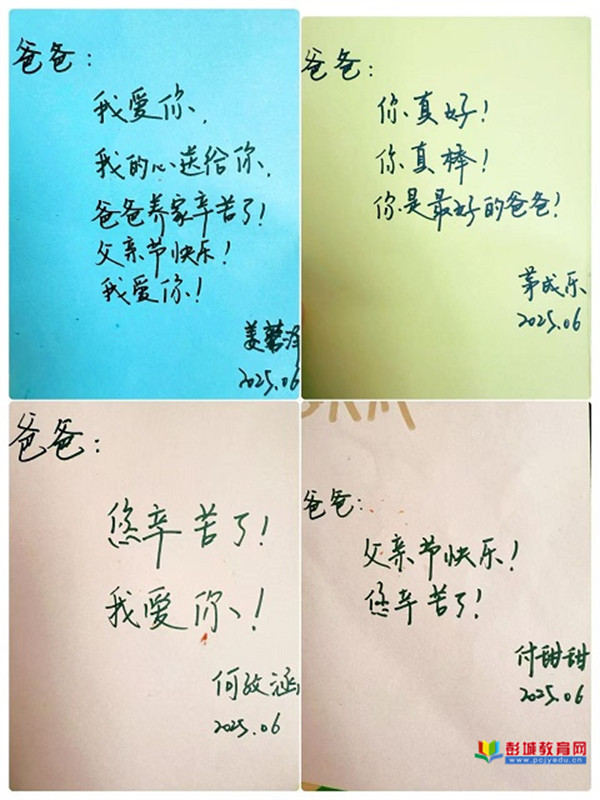 爸爸：
我爱你，
我的心送给你，
爸爸养家辛苦了！
父亲节快乐！
我爱你！
姜蓉泽
2025.06
爸爸：
你真好！
你真棒！
你是最好的爸爸！
茅成乐
2025.06
爸爸：
您辛苦了！
我爱你！
何孜涵
2025.06
爸爸：
父亲节快乐！
您辛苦了！
付甜甜
2025.06
彭城教育网
www.pcjyedu.cn